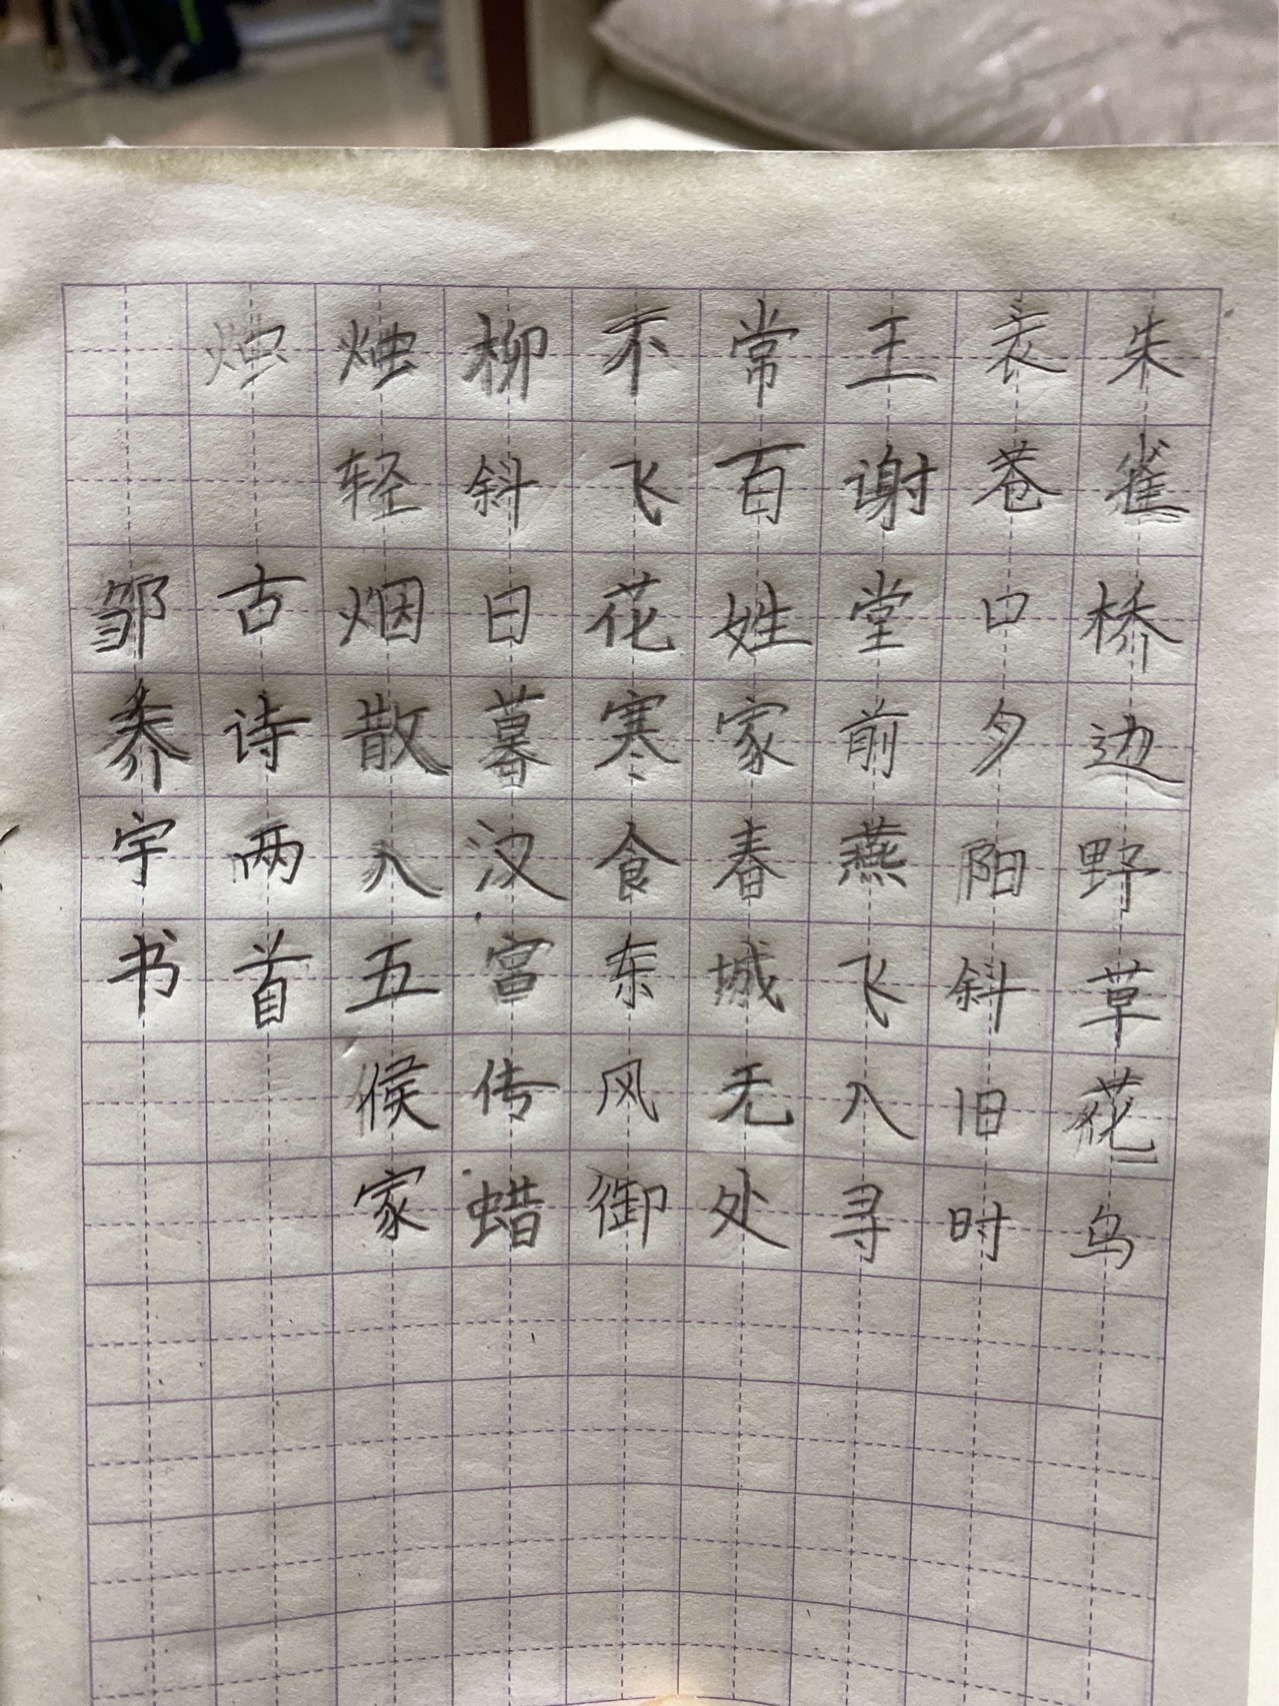 朱雀桥边野草花乌
衣巷口夕阳斜旧时
王谢堂前燕飞入寻
常百姓家春城无处
不飞花寒食东风御
柳斜日暮汉宫传蜡
烛轻烟散入五侯家
烛古诗两首
邹乔宇书